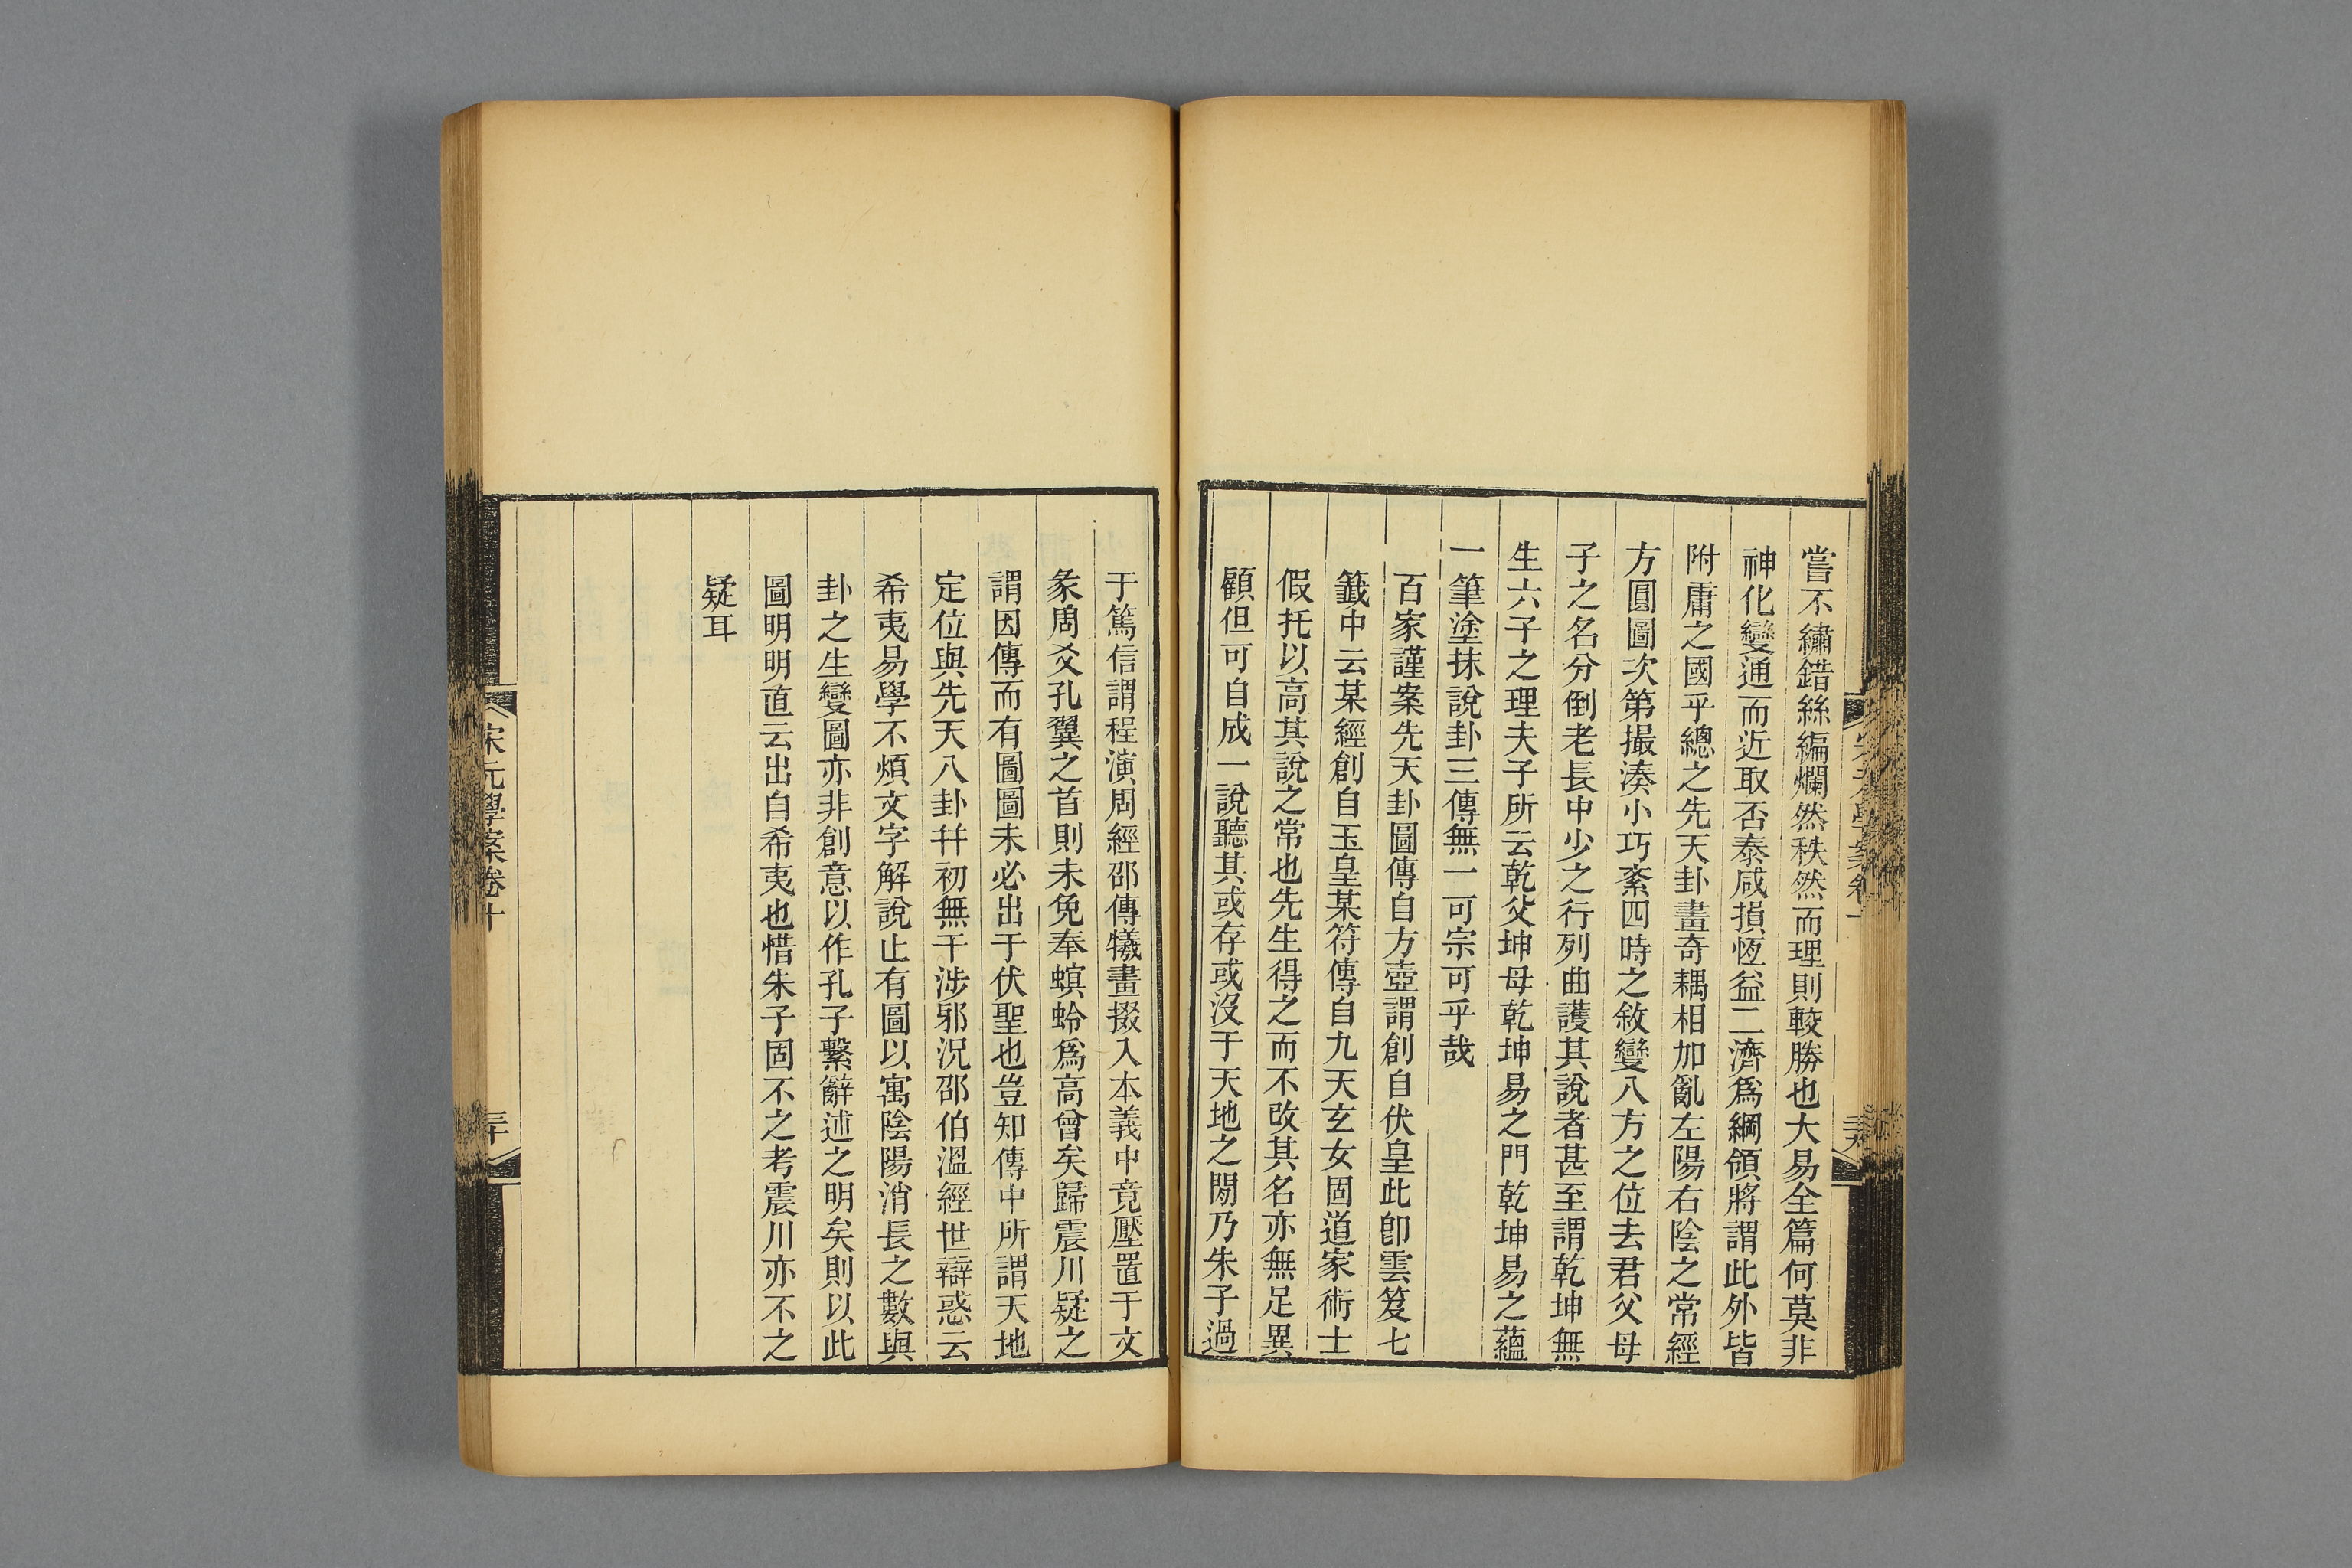 嘗不繡錯絲編爛然秩然而理則較勝也大易全篇何莫非
神化變通而近取否泰咸損恆益二濟爲綱領將謂此外皆
附庸之國乎總之先天卦畫奇耦相加亂左陽右陰之常經
方圓圖次第撮湊小巧紊四時之敘變八方之位去君父母
子之名分倒老長中少之行列曲護其說者甚至謂乾坤無
生六子之理夫子所云乾父坤母乾坤易之門乾坤易之蘊
一筆塗抹說卦三傳無一可宗可乎哉
百家謹案先天卦圖傳自方壺謂創自伏皇此卽雲笈七
籤中云某經創自玉皇某符傳自九天玄女固道家術士
假托以高其說之常也先生得之而不改其名亦無足異
顧但可自成一說聽其或存或沒于天地之閒乃朱子過
于篤信謂程演周經邵傳犧畫掇入本義中竟壓置于文
彖周爻孔翼之首則未免奉螟蛉爲高曾矣歸震川疑之
謂因傳而有圖圖未必出于伏聖也豈知傳中所謂天地
定位與先天八卦幷初無干涉邪況邵伯溫經世辯惑云
希夷易學不煩文字解說止有圖以寓陰陽消長之數與
卦之生變圖亦非創意以作孔子繫辭述之明矣則以此
圖明明直云出自希夷也惜朱子固不之考震川亦不之
疑耳
宋元學案卷十
三十